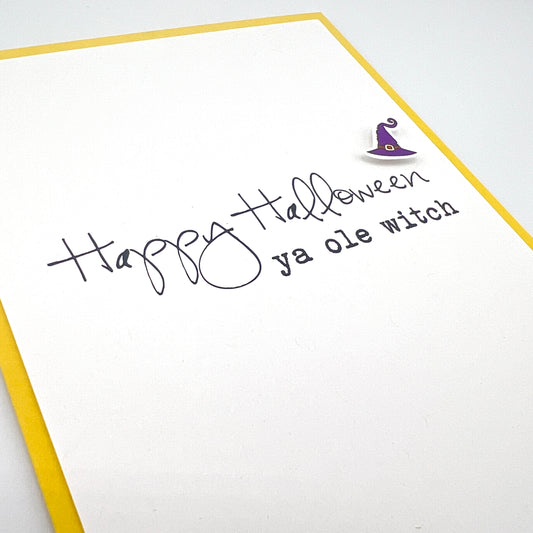 Happy Halloween
ya ole witch